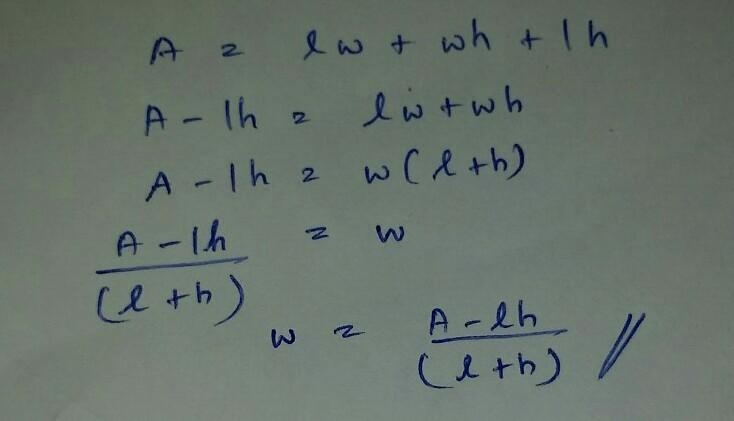 A = lw + wh + lh
A - lh = lw + wh
A - lh = w(l+h)
A - lh / (l+h) = w
w = A - lh / (l+h) //